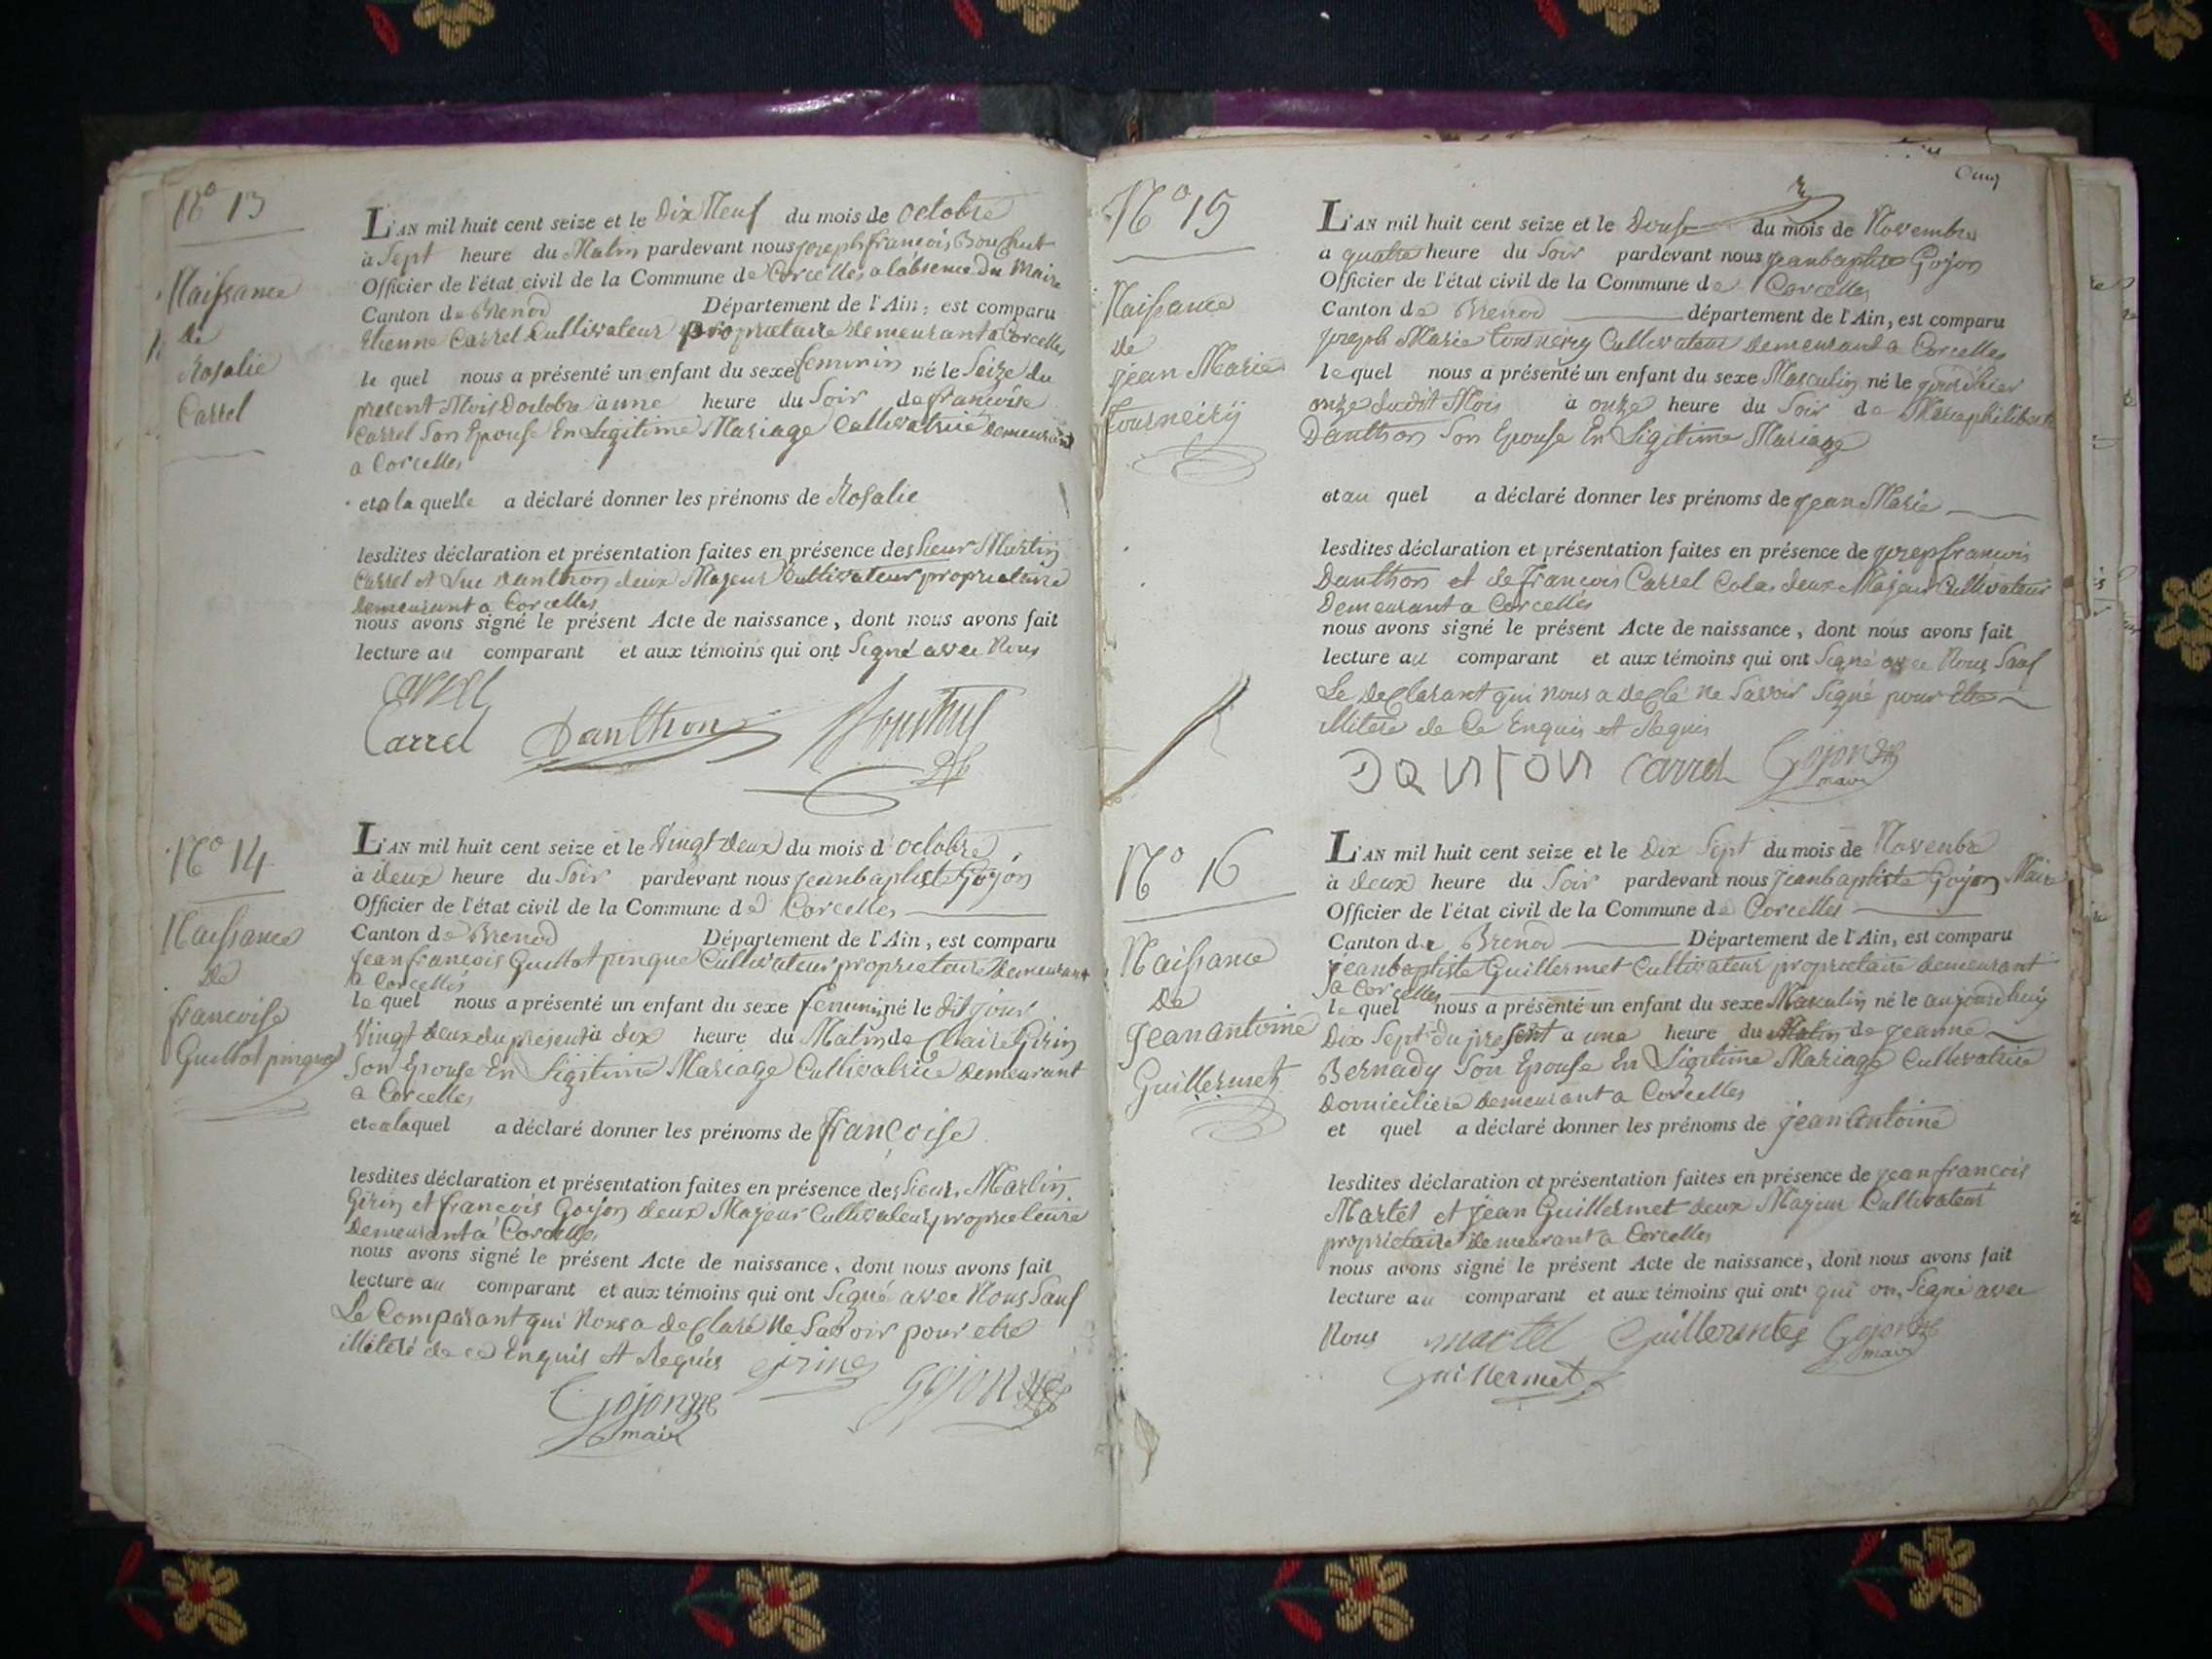 N° 13
Naissance
de
Rosalie
Carrel
L'AN mil huit cent seize et le Dix Neuf du mois de octobre
à Sept heure du Matin pardevant nous joseph francois Bouchut
Officier de l'état civil de la Commune de Corcelles a l'absence du Maire
Canton de Brenod Département de l'Ain, est comparu
Etienne Carrel Cultivateur proprietaire demeurant a Corcelles
le quel nous a présenté un enfant du sexe feminin né le Seize du
present Mois D'octobre a une heure du Soir de francoise
Carrel Son Epouse En Legitime Mariage Cultivatrice demeurant
a Corcelles
et a la quelle a déclaré donner les prénoms de Rosalie
lesdites déclaration et présentation faites en présence des Sieur Martin
Carrel et Luc Danthon deux Majeur Cultivateur propriétaire
demeurant a Corcelles
nous avons signé le présent Acte de naissance, dont nous avons fait
lecture au comparant et aux témoins qui ont Signé avec Nous
Carrel
Carrel Danthon Bouchut
N° 14
Naissance
de
francoise
Guillot pinque
L'AN mil huit cent seize et le Vingt deux du mois d'octobre
à deux heure du Soir pardevant nous jeanbaptiste Gojon
Officier de l'état civil de la Commune de Corcelles
Canton de Brenod Département de l'Ain, est comparu
jeanfrancois Guillot pinque Cultivateur proprietaire demeurant
a Corcelles
le quel nous a présenté un enfant du sexe feminin né le dit jour
Vingt deux du present a dix heure du Matin de Claire Girin
Son Epouse En Legitime Mariage Cultivatrice demeurant
a Corcelles
et a laquel a déclaré donner les prénoms de françoise
lesdites déclaration et présentation faites en présence des Sieur Martin
Girin et francois Gojon deux Majeur Cultivateur proprietaire
demeurant a Corcelles
nous avons signé le présent Acte de naissance, dont nous avons fait
lecture au comparant et aux témoins qui ont Signé avec Nous Sauf
Le Comparant qui Nous a declaré Ne Savoir pour etre
illiteré de ce Enquis et Requis girin gojon
Gojon
maire
Cinq
N° 15
Naissance
de
jean Marie
Tourneiry
L'AN mil huit cent seize et le Douse du mois de Novembre
a quatre heure du Soir pardevant nous jeanbaptiste Gojon
Officier de l'état civil de la Commune de Corcelles
Canton de Brenod département de l'Ain, est comparu
joseph Marie Tourneiry Cultivateur demeurant a Corcelles
le quel nous a présenté un enfant du sexe Masculin né le jourdhier
onze dudit Mois à onze heure du Soir de Mariephiliberte
Danthon Son Epouse En Legitime Mariage
et au quel a déclaré donner les prénoms de jean Marie
lesdites déclaration et présentation faites en présence de josepfrancois
Danthon et de francois Carrel Colas deux Majeur Cultivateur
demeurant a Corcelles
nous avons signé le présent Acte de naissance, dont nous avons fait
lecture au comparant et aux témoins qui ont Signé avec Nous Sauf
Le declarant qui nous a declé ne Savoir Signé pour Etre
illitere de Ce Enquis et Requis
DaNTON carrel Gojon
maire
N° 16
Naissance
De
jeanantoine
Guillermet
L'AN mil huit cent seize et le Dix Sept du mois de Novenbre
à deux heure du Soir pardevant nous jeanbaptiste Gojon Maire
Officier de l'état civil de la Commune de Corcelles
Canton de Brenod Département de l'Ain, est comparu
jeanbaptiste Guillermet Cultivateur proprietaire demeurant
a Corcelles
le quel nous a présenté un enfant du sexe Masculin né le aujourdhuy
Dix Sept du present a une heure du Matin de jeanne
Bernady Son Epouse En Legitime Mariage Cultivatrice
Domiciliere demeurant a Corcelles
et quel a déclaré donner les prénoms de jean Antoine
lesdites déclaration et présentation faites en présence de jeanfrancois
Martel et jean Guillermet deux Majeur Cultivateur
proprietaire demeurant a Corcelles
nous avons signé le présent Acte de naissance, dont nous avons fait
lecture au comparant et aux témoins qui ont qui on Signé avec
Nous martel Guillermtes Gojon
maire
Guillermet